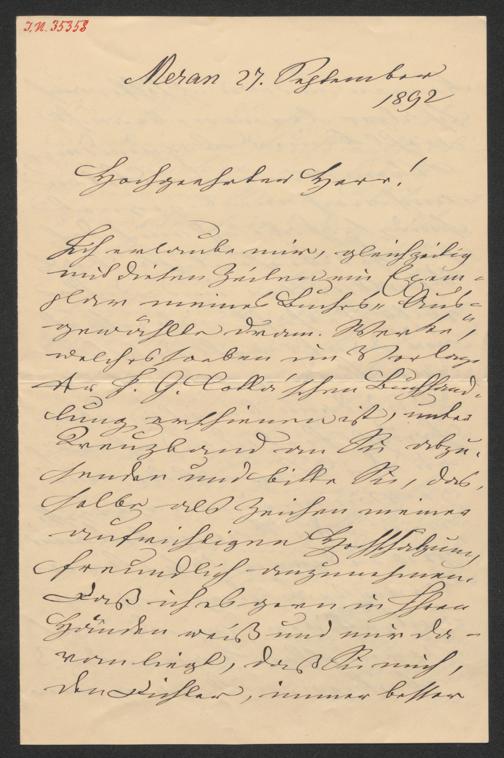 I.N. 35358
Meran 27. September
1892
Hochgeehrter Herr!
Ich erlaube mir, gleichzeitig
mit diesen Zeilen ein Exem-
plar meines Buches „Aus-
gewählte dram. Werke",
welches soeben im Verlage
der J. G. Cotta'schen Buchhand-
lung erschienen ist, unter
Kreuzband an Sie abzu-
senden und bitte Sie, das-
selbe als Zeichen meiner
aufrichtigen Hochschätzung
freundlich anzunehmen.
Daß ich es gern in Ihren
Händen weiß und mir da-
ran liegt, daß Sie mich,
den Dichter, immer besser